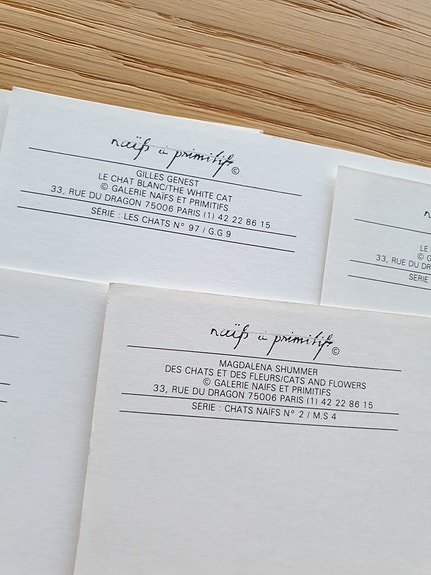 naïfs et primitifs ©
GILLES GENEST
LE CHAT BLANC/THE WHITE CAT
© GALERIE NAÏFS ET PRIMITIFS
33, RUE DU DRAGON 75006 PARIS (1) 42 22 86 15
SÉRIE : LES CHATS N° 97 / G.G 9
LE
©
33, RUE DU D
SÉRIE
naïfs et primitifs ©
MAGDALENA SHUMMER
DES CHATS ET DES FLEURS/CATS AND FLOWERS
© GALERIE NAÏFS ET PRIMITIFS
33, RUE DU DRAGON 75006 PARIS (1) 42 22 86 15
SÉRIE : CHATS NAÏFS N° 2 / M.S 4